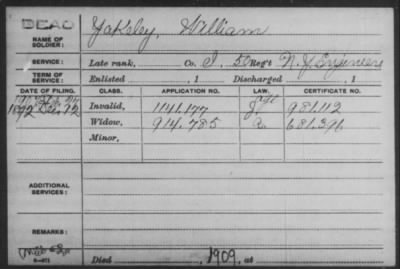 DEAD
NAME OF SOLDIER: Yakeley, William
SERVICE: Late rank, Co. I, 50 Reg't N.Y. Engineers
TERM OF SERVICE: Enlisted , 1 Discharged , 1
DATE OF FILING. CLASS. APPLICATION NO. CERTIFICATE NO.
Invalid, 1141.177 981.112
1892 Dec. 12 Widow, 914.785 a. 681.396
Minor,
ADDITIONAL SERVICES:
REMARKS:
6-671
Died , 1909, at